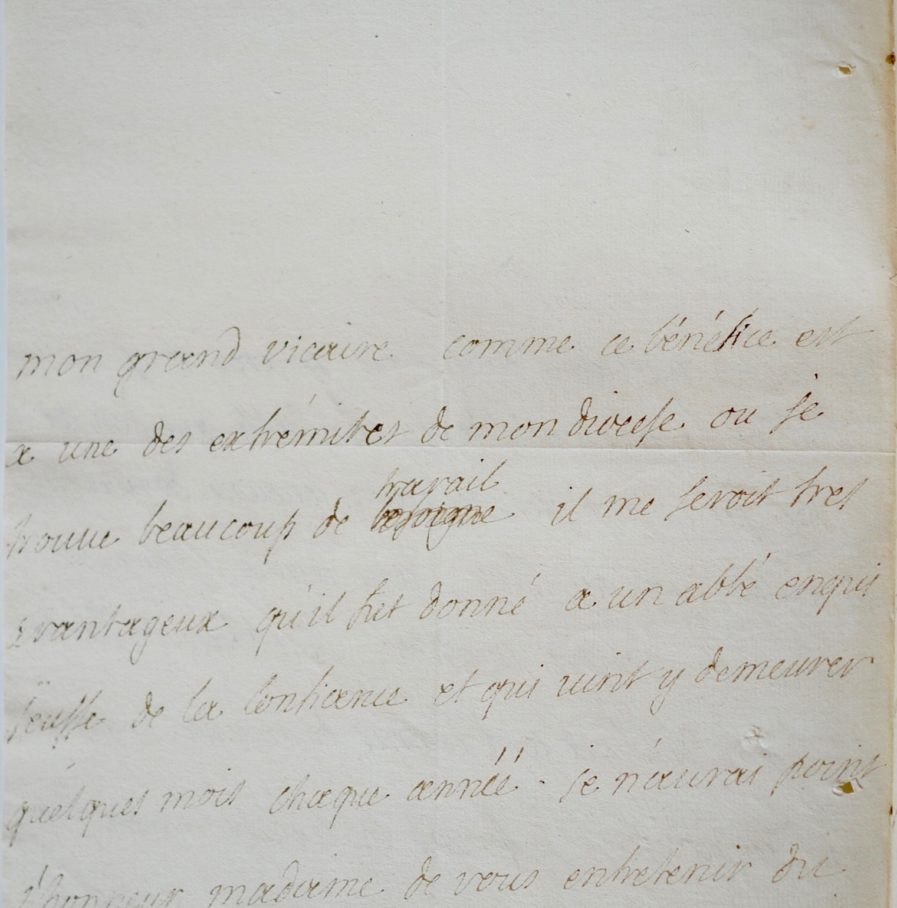 mon grand vicaire comme ce bénéfice est
a une des extrémités de mon diocese ou je
travail
trouve beaucoup de besoigne il me seroit tres
avantageux qu'il fut donné a un abbé en qui
j'eusse de la confiance et qui vint y demeurer
quelques mois chaque année. je n'aurai point
l'honneur madame de vous entretenir du